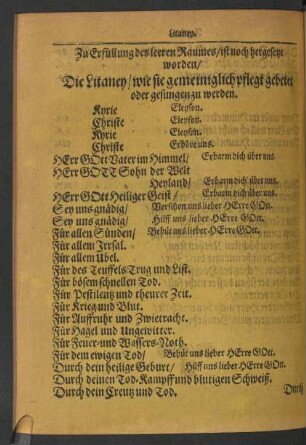 Litaney.
Zu Erfüllung des leeren Raumes/ ist noch hergesetzt
worden/
Die Litaney/ wie sie gemeiniglich pflegt gebetet
oder gesungen zu werden.
Kyrie Eleyson.
Christe Eleyson.
Kyrie Eleyson.
Christe Erhöre uns.
HErr GOtt Vater im Himmel/ Erbarm dich über uns.
HErr GOTT Sohn der Welt
Heyland/ Erbarm dich über uns.
HErr GOtt Heiliger Geist/ Erbarm dich über uns.
Sey uns gnädig/ Verschon uns lieber HErre GOtt.
Sey uns gnädig/ Hilff uns lieber HErre GOtt.
Für allen Sünden/ Behüt uns lieber HErre GOtt.
Für allem Irrsal.
Für allem Übel.
Für des Teuffels Trug und List.
Für bösem schnellen Tod.
Für Pestilentz und theurer Zeit.
Für Krieg und Blut.
Für Auffruhr und Zwietracht.
Für Hagel und Ungewitter.
Für Feuer-und Wassers-Noth.
Für dem ewigen Tod/ Behüt uns lieber HErre GOtt.
Durch dein heilige Geburt/ Hilff uns lieber HErre GOtt.
Durch deinen Tod-Kampff und blutigen Schweiß.
Durch dein Creutz und Tod.
Durch